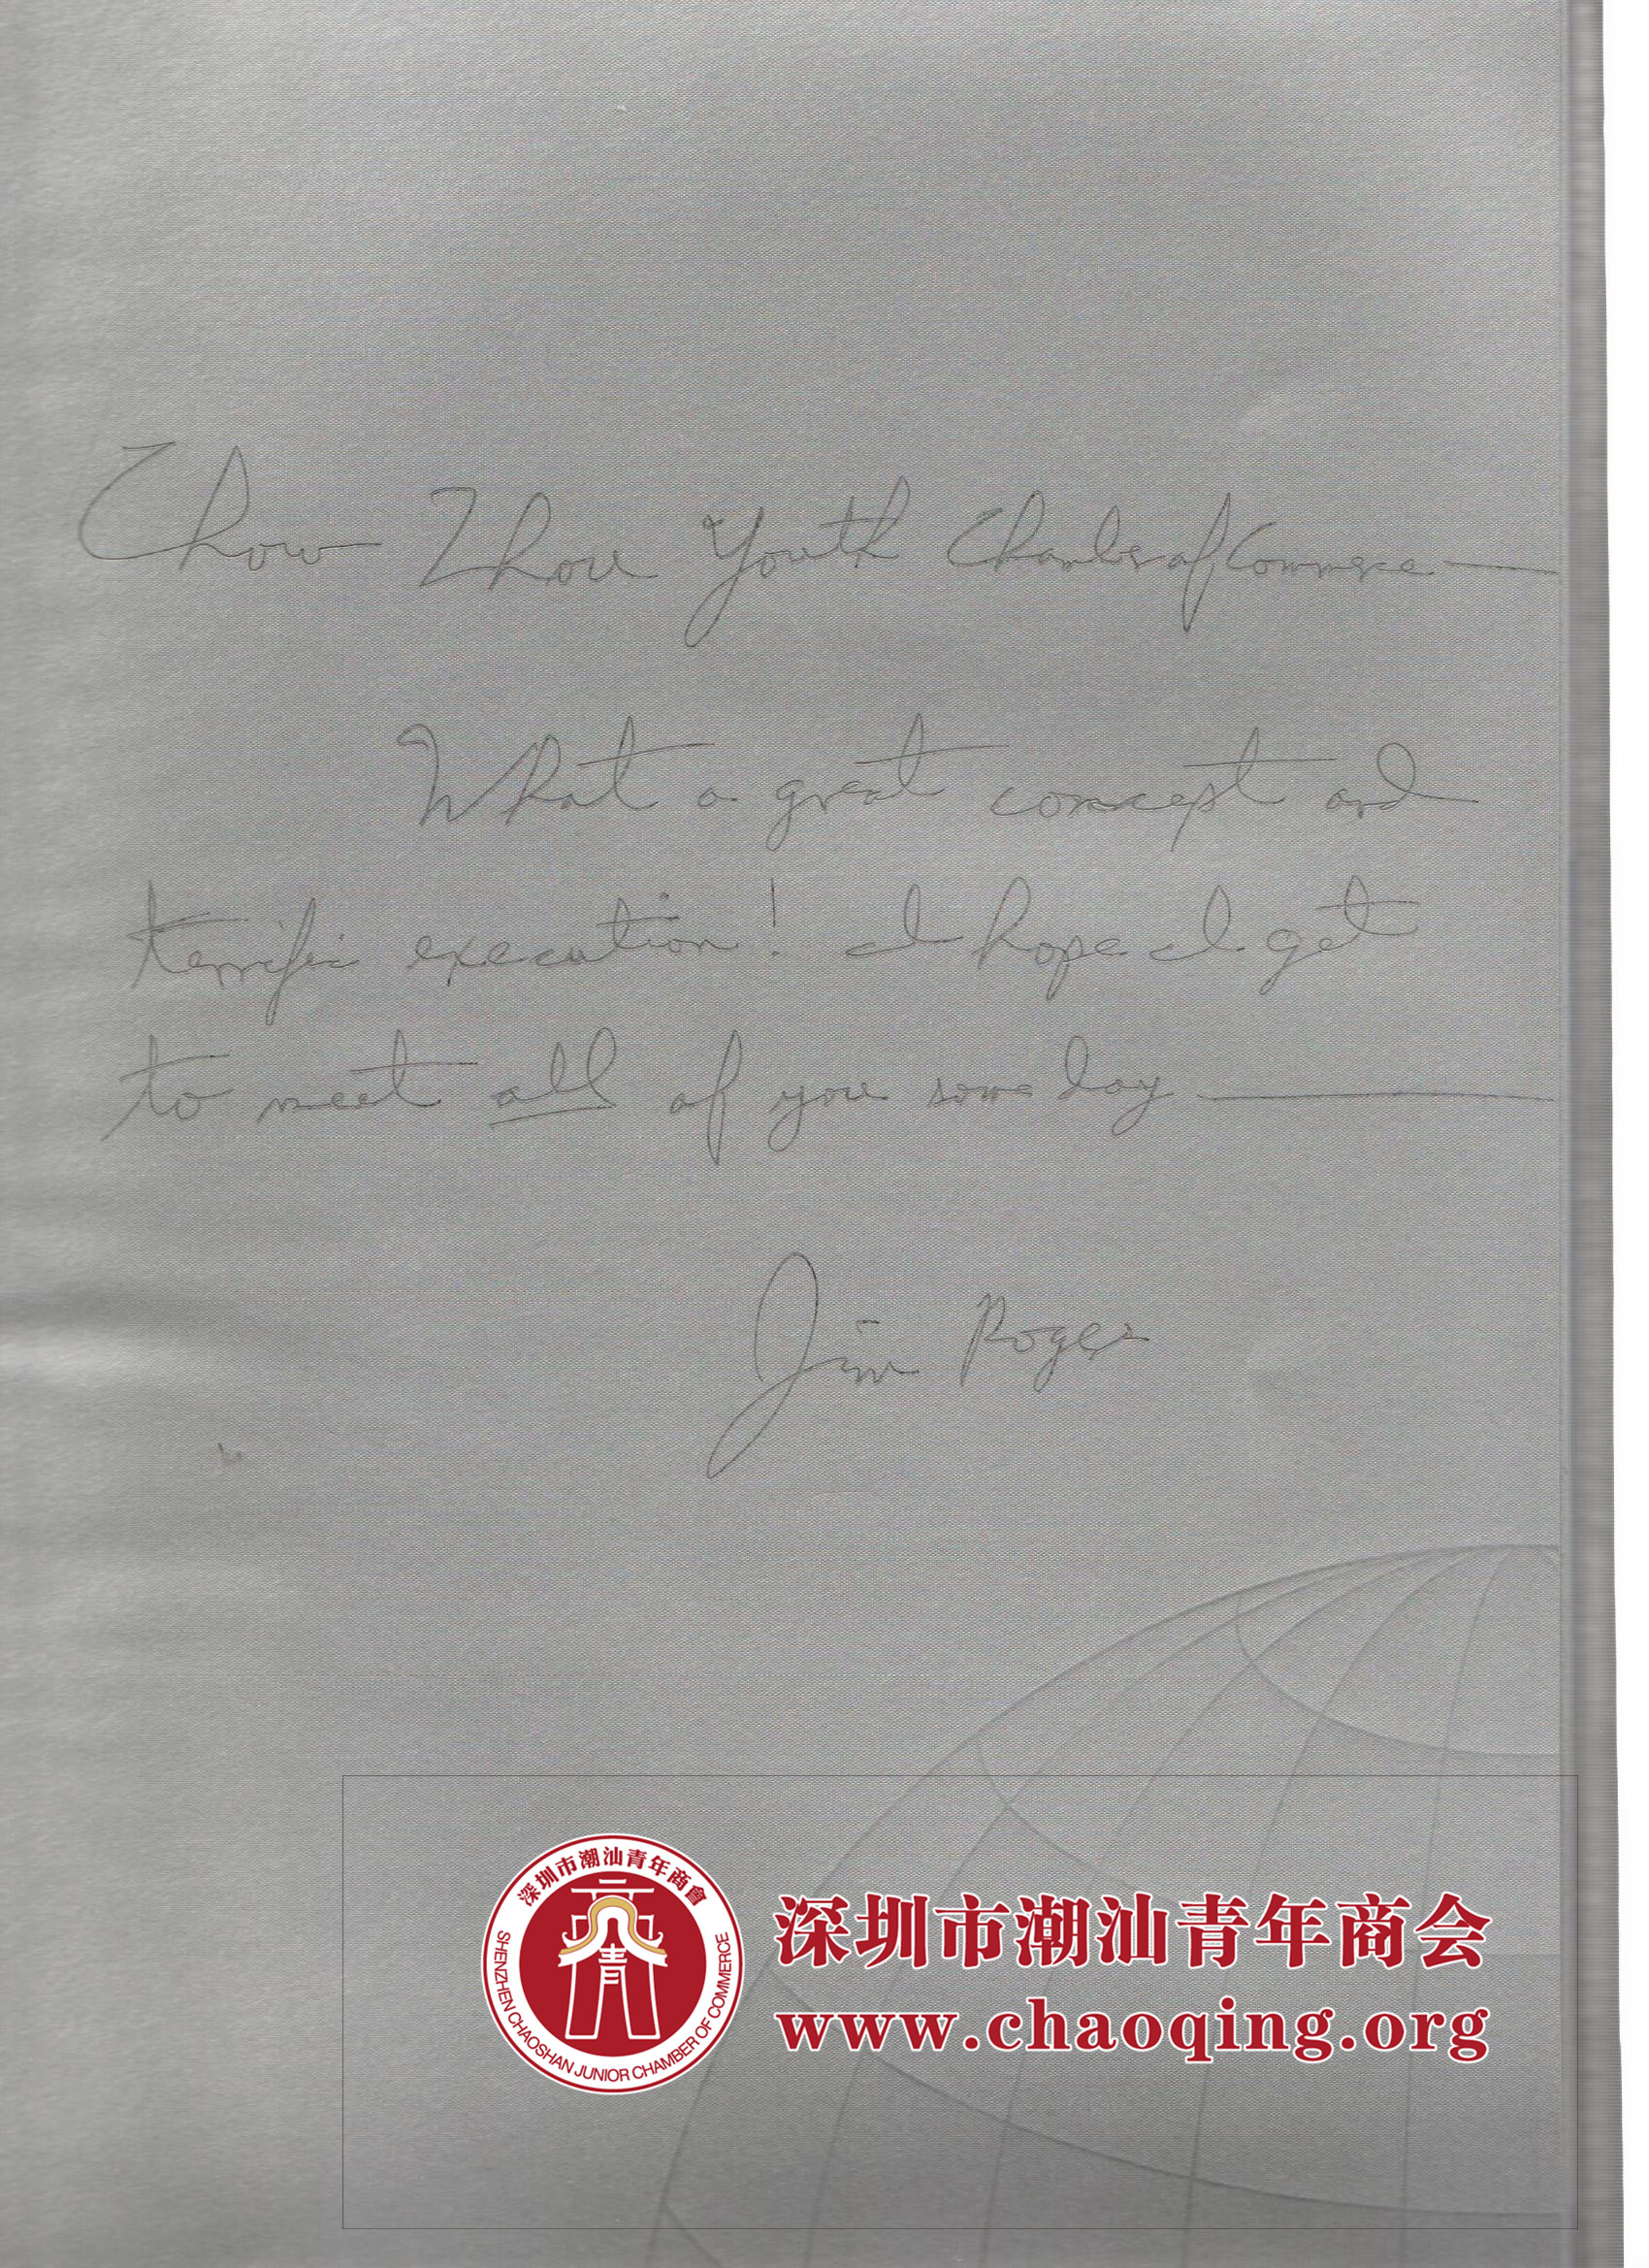 Chow Zhou Youth Chamber of Commerce —
What a great concept and
terrific execution! I hope I get
to meet all of you some day —
Jim Rogers
深圳市潮汕青年商會
SHENZHEN CHAOSHAN JUNIOR CHAMBER OF COMMERCE
青
深圳市潮汕青年商会
www.chaoqing.org